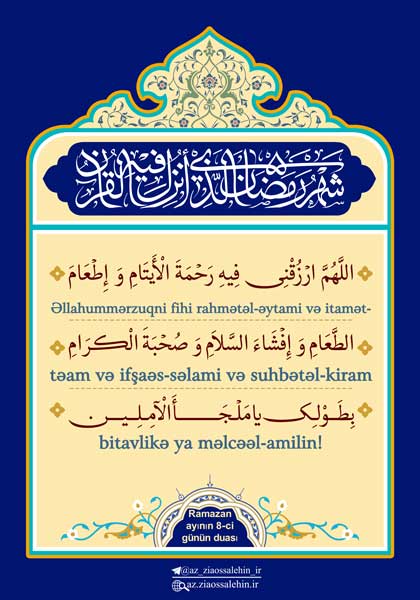 شهر رمضان الذي أنزل فيه القرآن
اللَّهُمَّ ارْزُقْنِی فِیهِ رَحْمَةَ الْأَیْتَامِ وَ إِطْعَامَ
Əllahummərzuqni fihi rəhmətəl-əytami və itamət-
الطَّعَامِ وَ إِفْشَاءَ السَّلَامِ وَ صُحْبَةَ الْكَرَامِ
təam və ifşaəs-səlami və suhbətəl-kiram
بِطَوْلِکَ یا مَلْجَأَ الْآمِلِینَ
bitavlikə ya məlcəəl-amilin!
Ramazan
ayının 8-ci
günün duası
@az_ziaossalehin_ir
az.ziaossalehin.ir